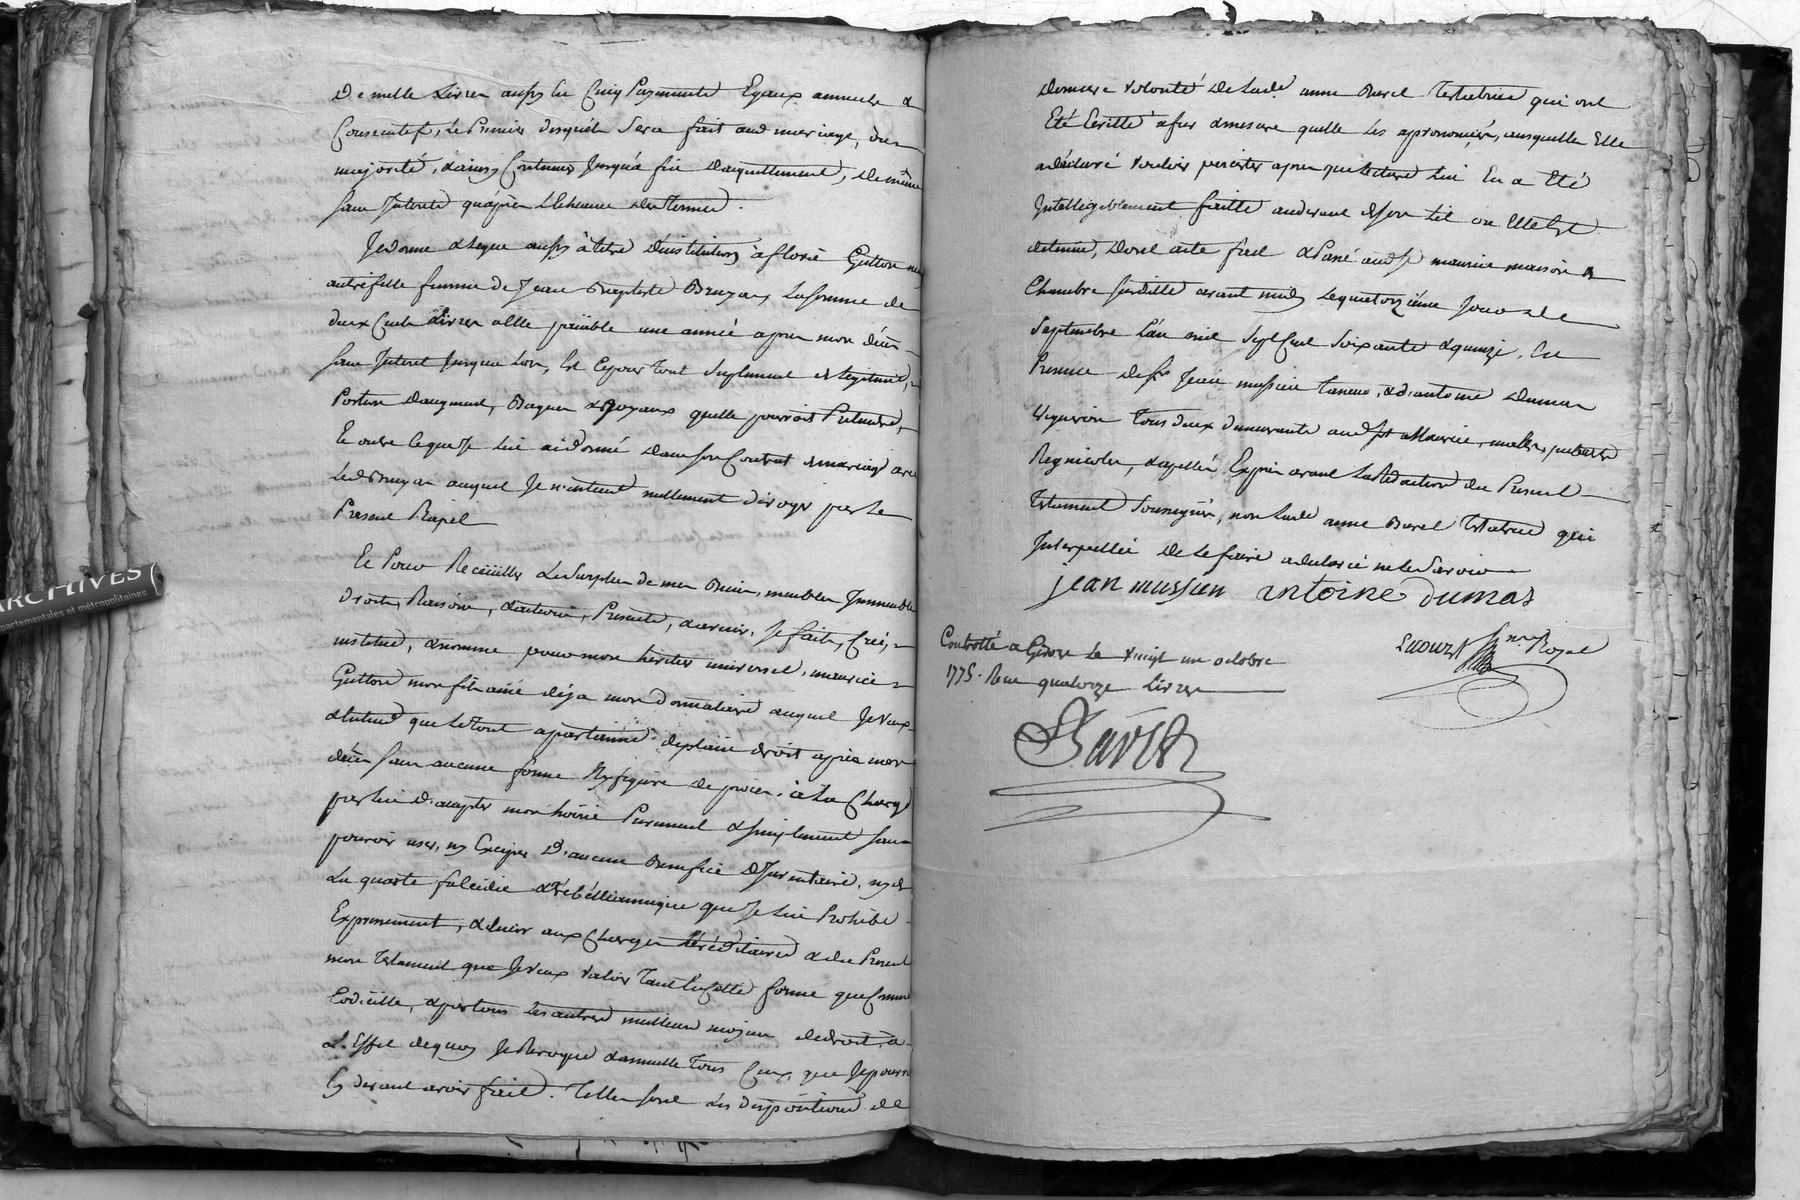 De mille Livres aussy en Cinq Payements Egaux annuels &
Consecutifs, Le Premier desquels sera fait aud mariage, ou
majorité, & ainsy Continuer jusqu'à fin dacquittement, de même
sans Interets qu'après L'Echeance des Termes.
Je donne & Legue aussy à titre d'institution à florie Gutton ma
autre fille femme de Jean Baptiste Bruyas, La somme de
deux Cents Livres a Elle païable une année apres mon décès
sans Interet jusqu'a Lors, Et Ce pour tout suplement de Legitime,
Portion d'augment, Bagues & Joyaux quelle pourroit Pretendre,
Et outre Ce que Je Lui ai donné dans son Contrat de mariage avec
Led Bruyas auquel Je n'entend nullement déroger par Le
Present Rapel
Et Pour Receüillir Le Surplus de mes Biens, meubles Immeubles
Droits, Raisons, & actions, Presents, & avenir, Je fais, Crée,
institue, & nomme pour mon heritier universel, maurice
Gutton mon fils ainé déja mon donnataire auquel Je veux
& Entend que Le tout apartienne de plain droit après mon
décès sans aucune forme Ny figure de procès, à La Charge
par lui d'accepter mon hoirie Purement & simplement sans
pouvoir user, ny Exciper d'aucun Benefice d'Inventaire, ny de
La quarte falcidie & trébéllianique que Je Lui Prohibe
Expressement, & tenir aux Charges héréditaires & du Present
mon Testament que Je veux valoir Tant En Cette forme que Comme
Codicille, & par tous Les autres meilleurs moyens de droit, à
L'Effet de quoy Je Revoque & annulle Tous Ceux que Je pourrois
Cy devant avoir fait. Telles sont Les dispositions de
Derniere volonté de Lade anne Burel Testatrice qui ont
Eté Ecrittes à fur & mesure quelle Les a prononcées, ausquelles Elle
a déclaré vouloir persister apres que Lecture Lui En a Eté
Intelligiblement faitte au devant de son Lit ou Elle Est
detenue, dont acte fait & Passé aud St maurice maison &
Chambre susditte avant midy Le quatorzième Jour de
Septembre L'an mil Sept Cent Soixante & quinze, En
Presence de Sr Jean mussieu & d'antoine Dumas
Vigneron Tous deux demeurants aud St Maurice, mâles, puberes
Regnicoles, & apellés Exprès avant La Rédaction du Present
Testament Soussignés, non Lade anne Burel Testatrice qui
Interpellée de Le faire a declaré ne Le Savoir
jean mussieu antoine dumas
nre Royal
Controllé a Givors Le vingt un octobre
1775. Reçu quatorze Livres